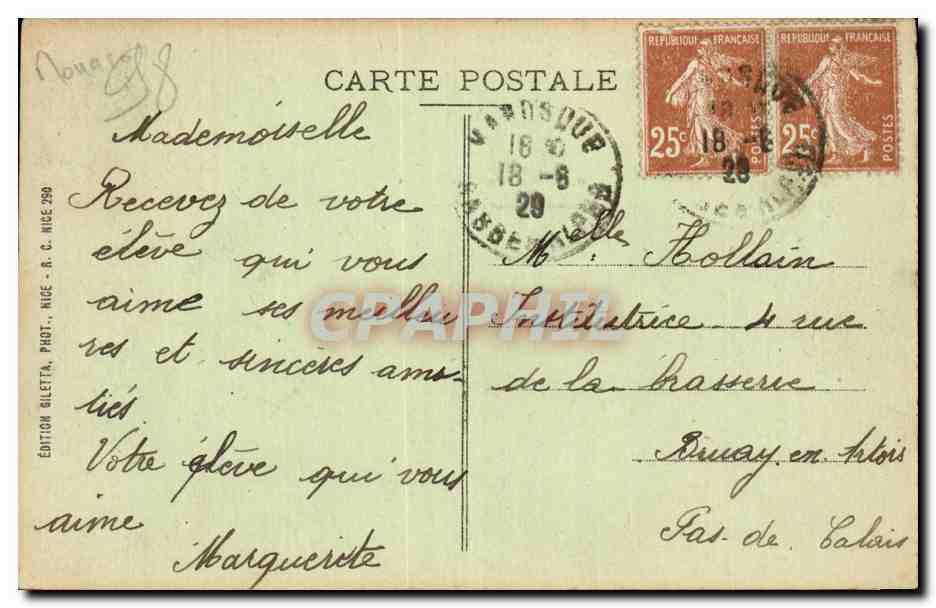 Monaco
98
CARTE POSTALE
RÉPUBLIQUE FRANÇAISE
25c
POSTES
RÉPUBLIQUE FRANÇAISE
25c
POSTES
18
18 -6
29
18 -6
Mademoiselle
Recevez de votre
élève qui vous
aime ses meilleu
res et sinceres ami-
tiés
Votre élève qui vous
aime
Marguerite
Melle Hollain
Institutrice 4 rue
de la brasserie
Bruay en Artois
Pas-de-Calais
EDITION GILETTA, PHOT., NICE - R. C. NICE 290
CPAPHIL